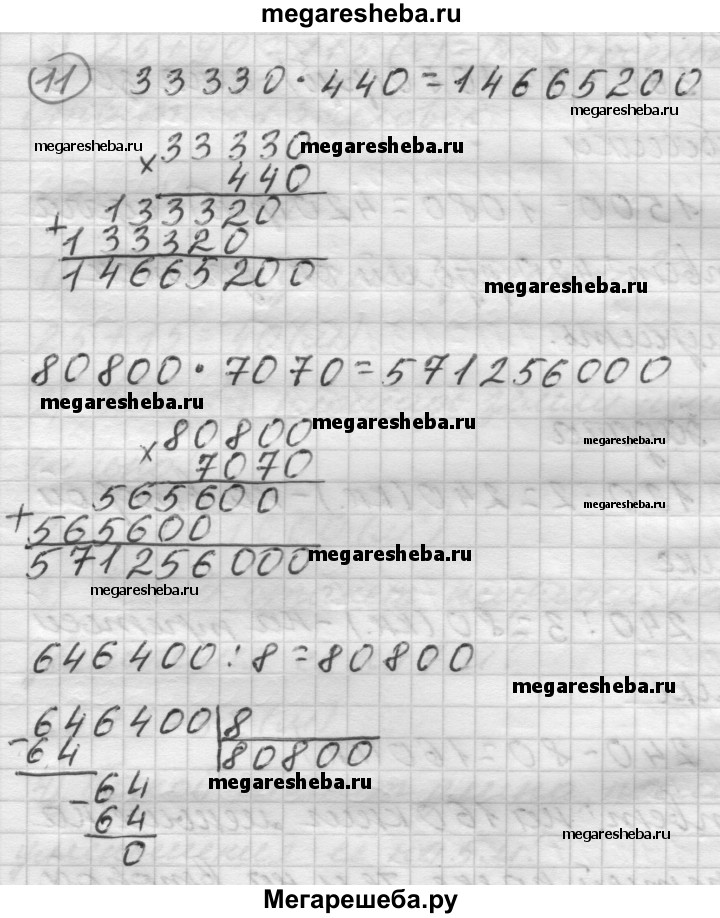 megaresheba.ru
11 33330 · 440 = 14665200
megaresheba.ru
megaresheba.ru × 33330 megaresheba.ru
440
+ 133320
133320
14665200
megaresheba.ru
80800 · 7070 = 571256000
megaresheba.ru
× 80800 megaresheba.ru
megaresheba.ru
7070
565600 megaresheba.ru
+ 565600
571256000 megaresheba.ru
megaresheba.ru
646400 : 8 = 80800
megaresheba.ru
646400 8
- 64 80800
- 64 megaresheba.ru
64
megaresheba.ru
0
Мегарешеба.ру